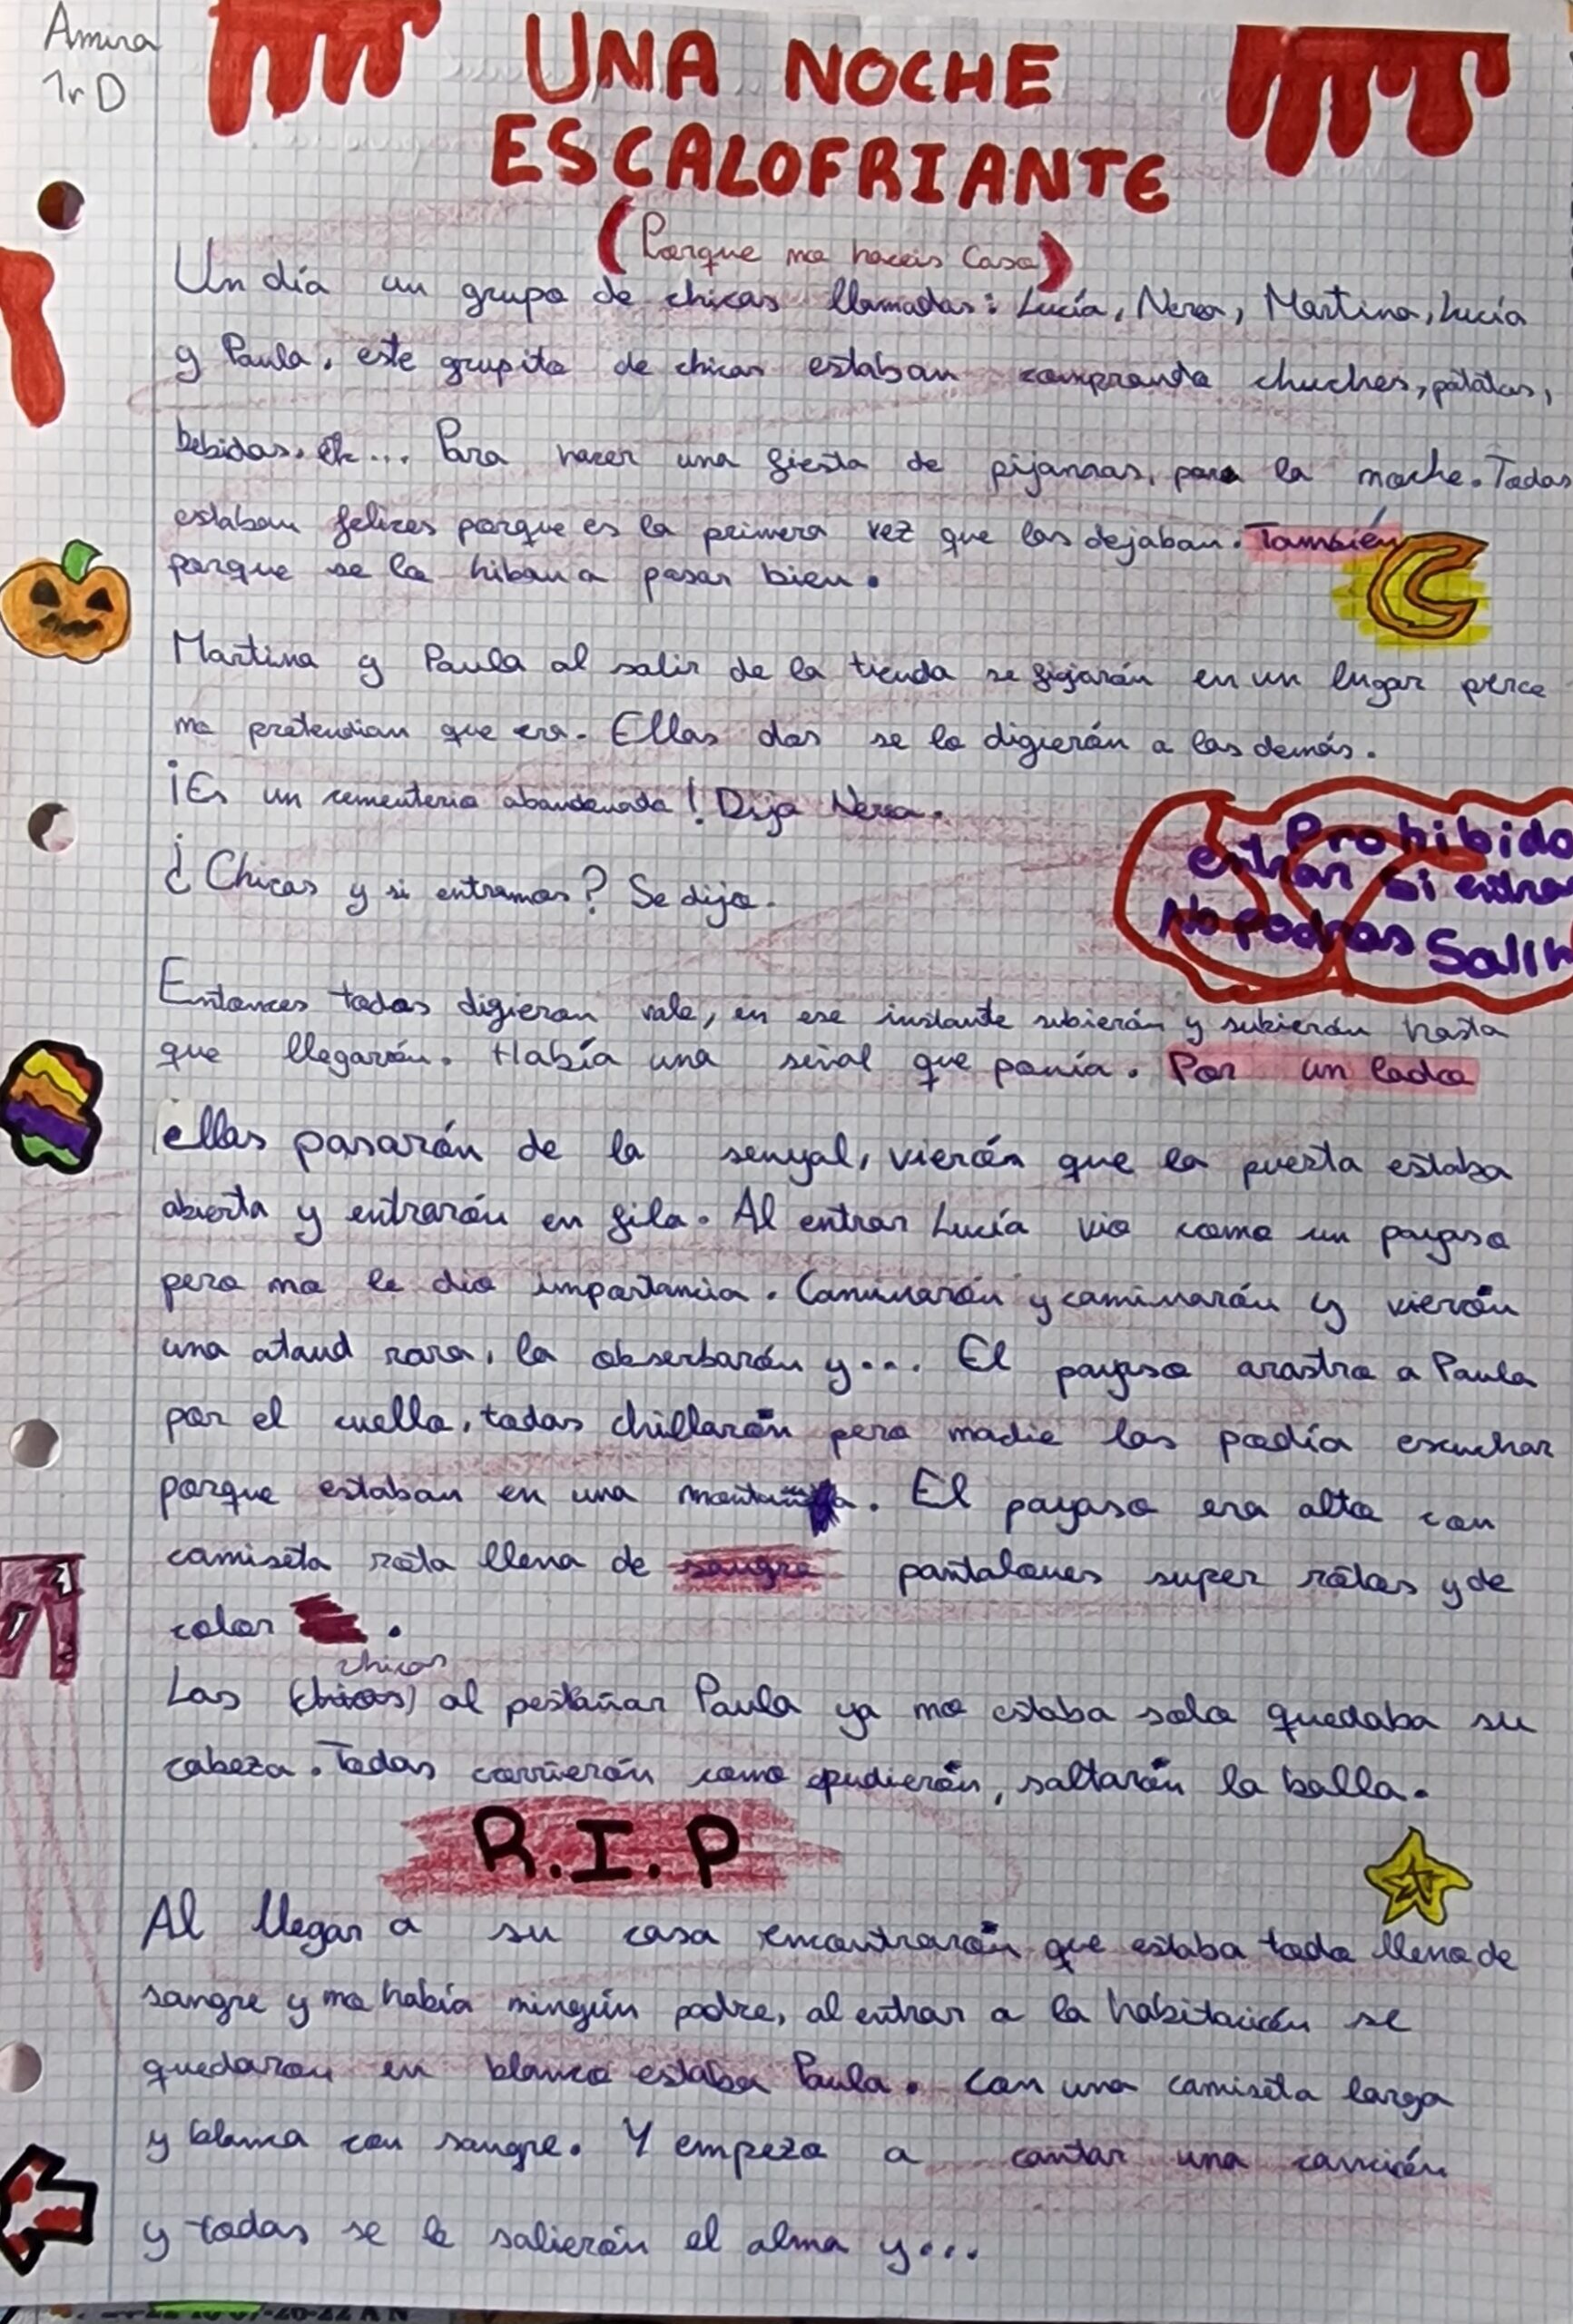 Amira
1r D
UNA NOCHE
ESCALOFRIANTE
(Porque no haceis Caso)
Un día un grupo de chicas llamadas: Lucía, Nerea, Martina, Lucía
y Paula, este grupito de chicas estaban comprando chuches, patatas,
bebidas, etc... Para hacer una fiesta de pijamas, para la noche. Todas
estaban felices porque es la primera vez que las dejaban. También
porque se la hiban a pasar bien.
Martina y Paula al salir de la tienda se fijarón en un lugar
no pretendian que era. Ellas dos se lo digierón a las demás.
¡Es un cementerio abandonado! Dijo Nerea.
¿Chicas y si entramos? Se dijo.
Prohibido
entrar si entra
No podras Salir
Entonces todas digieron vale, en ese instante subierón y subierón hasta
que llegarón. Había una señal que ponía. Por un lado
ellas pasarón de la senyal, vierón que la puerta estaba
abierta y entrarón en fila. Al entrar Lucía vio como un payaso
pero no le dio importancia. Caminarón y caminarón y vierón
una ataud rara, la obserbarón y... El payaso arastro a Paula
por el cuello, todas chillarón pero nadie las podía escuchar
porque estaban en una montaña. El payaso era alto con
camiseta rota llena de sangre pantalones super rotos y de
color .
chicas
Las (chicas) al pestañar Paula ya no estaba solo quedaba su
cabeza. Todas corrierón como pudierón, saltarón la balla.
R.I.P
Al llegar a su casa encontrarón que estaba todo lleno de
sangre y no había ningún padre, al entrar a la habitación se
quedaron en blanco estaba Paula. Con una camiseta larga
y blanca con sangre. Y empezo a cantar una canción
y todas se le salierón el alma y...